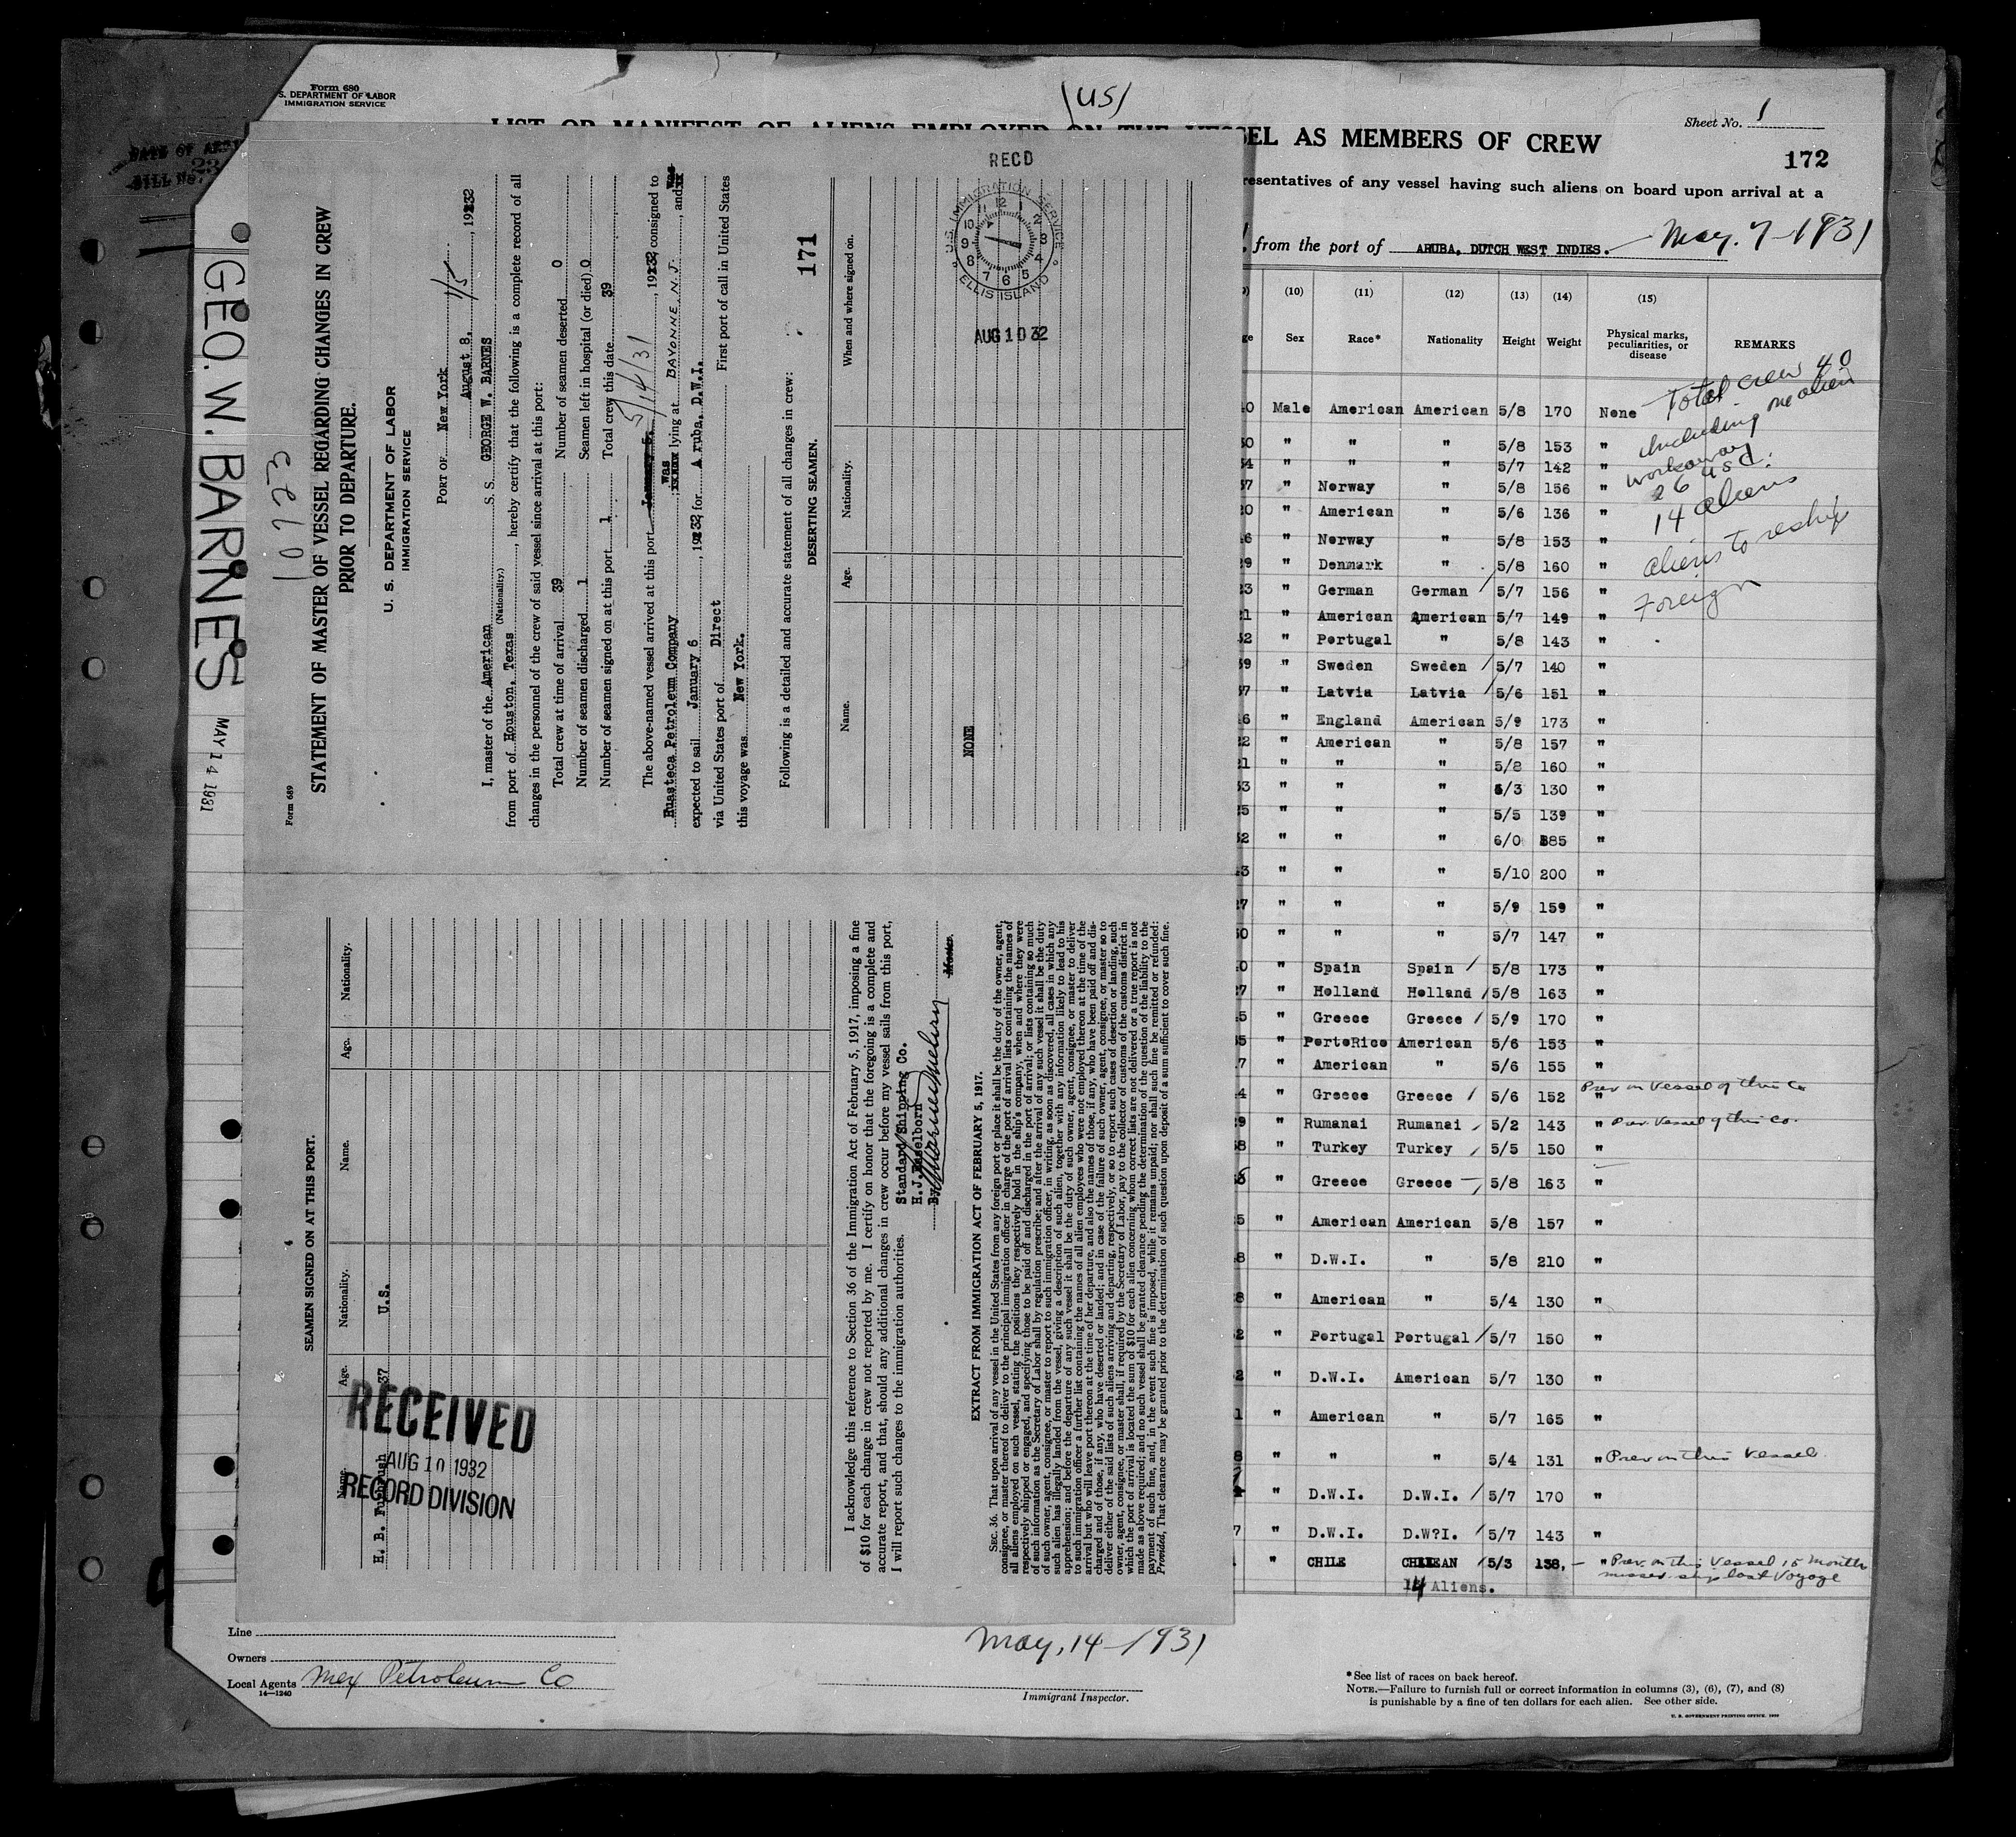 Form 680
S. DEPARTMENT OF LABOR
IMMIGRATION SERVICE
(US)
LIST OR MANIFEST OF ALIENS EMPLOYED ON THE VESSEL AS MEMBERS OF CREW
Sheet No. 1
172
resentatives of any vessel having such aliens on board upon arrival at a
from the port of ARUBA, DUTCH WEST INDIES. May. 7-1931
GEO. W. BARNES
MAY 14 1931
(10) (11) (12) (13) (14) (15)
Sex Race* Nationality Height Weight Physical marks, peculiarities, or disease REMARKS
Total crew 40
including one alien
workaway
26 USC.
14 aliens
aliens to reship
Foreign
Male American American 5/8 170 None
" " " 5/8 153 "
" " " 5/7 142 "
" Norway " 5/8 156 "
" American " 5/6 136 "
" Norway " 5/8 153 "
" Denmark " 5/8 160 "
" German German 5/7 156 "
" American American 5/7 149 "
" Portugal " 5/8 143 "
" Sweden Sweden 5/7 140 "
" Latvia Latvia 5/6 151 "
" England American 5/9 173 "
" American " 5/8 157 "
" " " 5/8 160 "
" " " 5/3 130 "
" " " 5/5 139 "
" " " 6/0 185 "
" " " 5/10 200 "
" " " 5/9 159 "
" " " 5/7 147 "
" Spain Spain 5/8 173 "
" Holland Holland 5/8 163 "
" Greece Greece 5/9 170 "
" PortoRico American 5/6 153 "
" American " 5/6 155 "
" Greece Greece 5/6 152 " Prev on Vessel of this Co
" Rumanai Rumanai 5/2 143 " Prev. Vessel of this Co.
" Turkey Turkey 5/5 150 "
" Greece Greece 5/8 163 "
" American American 5/8 157 "
" D.W.I. " 5/8 210 "
" American " 5/4 130 "
" Portugal Portugal 5/7 150 "
" D.W.I. American 5/7 130 "
" American " 5/7 165 "
" " " 5/4 131 " Prev on this Vessel
" D.W.I. D.W.I. 5/7 170 "
" D.W.I. D.W?I. 5/7 143 "
" CHILE CHILEAN 5/3 138, " Prev. on this Vessel 15 months
missed ship last Voyage
14 Aliens.
Line
Owners
Local Agents Mex Petroleum Co
14—1240
May, 14-1931
Immigrant Inspector.
*See list of races on back hereof.
NOTE.—Failure to furnish full or correct information in columns (3), (6), (7), and (8)
is punishable by a fine of ten dollars for each alien. See other side.
U. S. GOVERNMENT PRINTING OFFICE
Form 689
STATEMENT OF MASTER OF VESSEL REGARDING CHANGES IN CREW
PRIOR TO DEPARTURE.
U. S. DEPARTMENT OF LABOR
IMMIGRATION SERVICE
PORT OF New York
August 8, 1932
I, master of the American S. S. GEORGE W. BARNES
(Nationality.)
from port of Houston, Texas, hereby certify that the following is a complete record of all
changes in the personnel of the crew of said vessel since arrival at this port:
Total crew at time of arrival 39 Number of seamen deserted 0
Number of seamen discharged 1 Seamen left in hospital (or died) 0
Number of seamen signed on at this port 1 Total crew this date 39
5/14/31
The above-named vessel arrived at this port January 5, 1932 consigned to
Huasteca Petroleum Company was lying at BAYONNE, N.J., and was
expected to sail January 6, 1932 for Aruba, D.W.I.
via United States port of Direct First port of call in United States
this voyage was New York.
Following is a detailed and accurate statement of all changes in crew: 171
DESERTING SEAMEN.
Name. Age. Nationality. When and where signed on.
NONE
RECD
U.S. IMMIGRATION SERVICE
ELLIS ISLAND
AUG 10 32
4
SEAMEN SIGNED ON AT THIS PORT.
Name. Age. Nationality. Name. Age. Nationality.
H. B. 37 U.S.
RECEIVED
AUG 10 1932
RECORD DIVISION
I acknowledge this reference to Section 36 of the Immigration Act of February 5, 1917, imposing a fine
of $10 for each change in crew not reported by me. I certify on honor that the foregoing is a complete and
accurate report, and that, should any additional changes in crew occur before my vessel sails from this port,
I will report such changes to the immigration authorities.
Standard Shipping Co.
H.J.Esselborn
By
Master.
EXTRACT FROM IMMIGRATION ACT OF FEBRUARY 5, 1917.
SEC. 36. That upon arrival of any vessel in the United States from any foreign port or place it shall be the duty of the owner, agent,
consignee, or master thereof to deliver to the principal immigration officer in charge of the port of arrival lists containing the names of
all aliens employed on such vessel, stating the positions they respectively hold in the ship's company, when and where they were
respectively shipped or engaged, and specifying those to be paid off and discharged in the port of arrival; or lists containing so much
of such information as the Secretary of Labor shall by regulation prescribe; and after the arrival of any such vessel it shall be the duty
of such owner, agent, consignee, or master to report to such immigration officer, in writing, as soon as discovered, all cases in which any
such alien has illegally landed from the vessel, giving a description of such alien, together with any information likely to lead to his
apprehension; and before the departure of any such vessel it shall be the duty of such owner, agent, consignee, or master to deliver
to such immigration officer a further list containing the names of all alien employees who were not employed thereon at the time of the
arrival but who will leave port thereon at the time of her departure, and also the names of those, if any, who have been paid off and dis-
charged and of those, if any, who have deserted or landed; and in case of the failure of such owner, agent, consignee, or master so to
deliver either of the said lists of such aliens arriving and departing, respectively, or so to report such cases of desertion or landing, such
owner, agent, consignee, or master shall, if required by the Secretary of Labor, pay to the collector of customs of the customs district in
which the port of arrival is located the sum of $10 for each alien concerning whom correct lists are not delivered or a true report is not
made as above required; and no such vessel shall be granted clearance pending the determination of the question of the liability to the
payment of such fine, and, in the event such fine is imposed, while it remains unpaid; nor shall such fine be remitted or refunded:
Provided, That clearance may be granted prior to the determination of such question upon deposit of a sum sufficient to cover such fine.